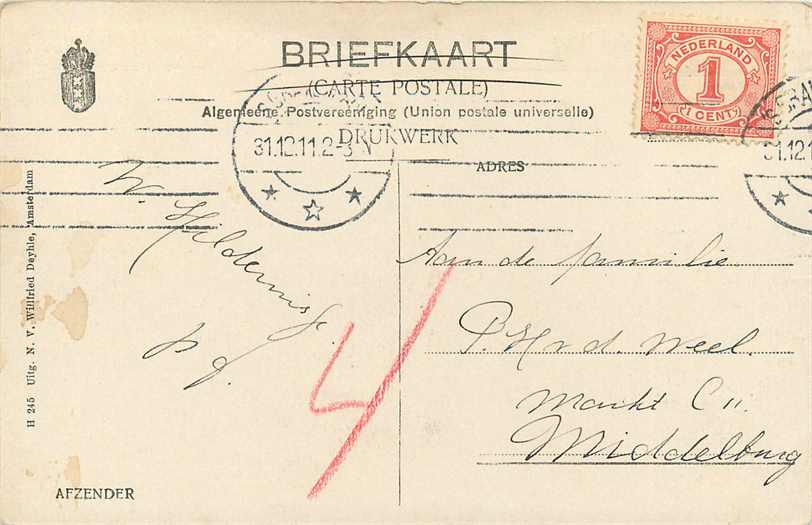 BRIEFKAART
(CARTE POSTALE)
Algemeene Postvereeniging (Union postale universelle)
DRUKWERK
NEDERLAND
1
1 CENT
31.12.11.2-3N
31.12.1
ADRES
Aan de familie
P. H v d. Weel.
Markt C 11.
Middelburg
W. Hildernisse
p f.
4
H 245 Uitg. N. V. Willfried Deyhle, Amsterdam
AFZENDER